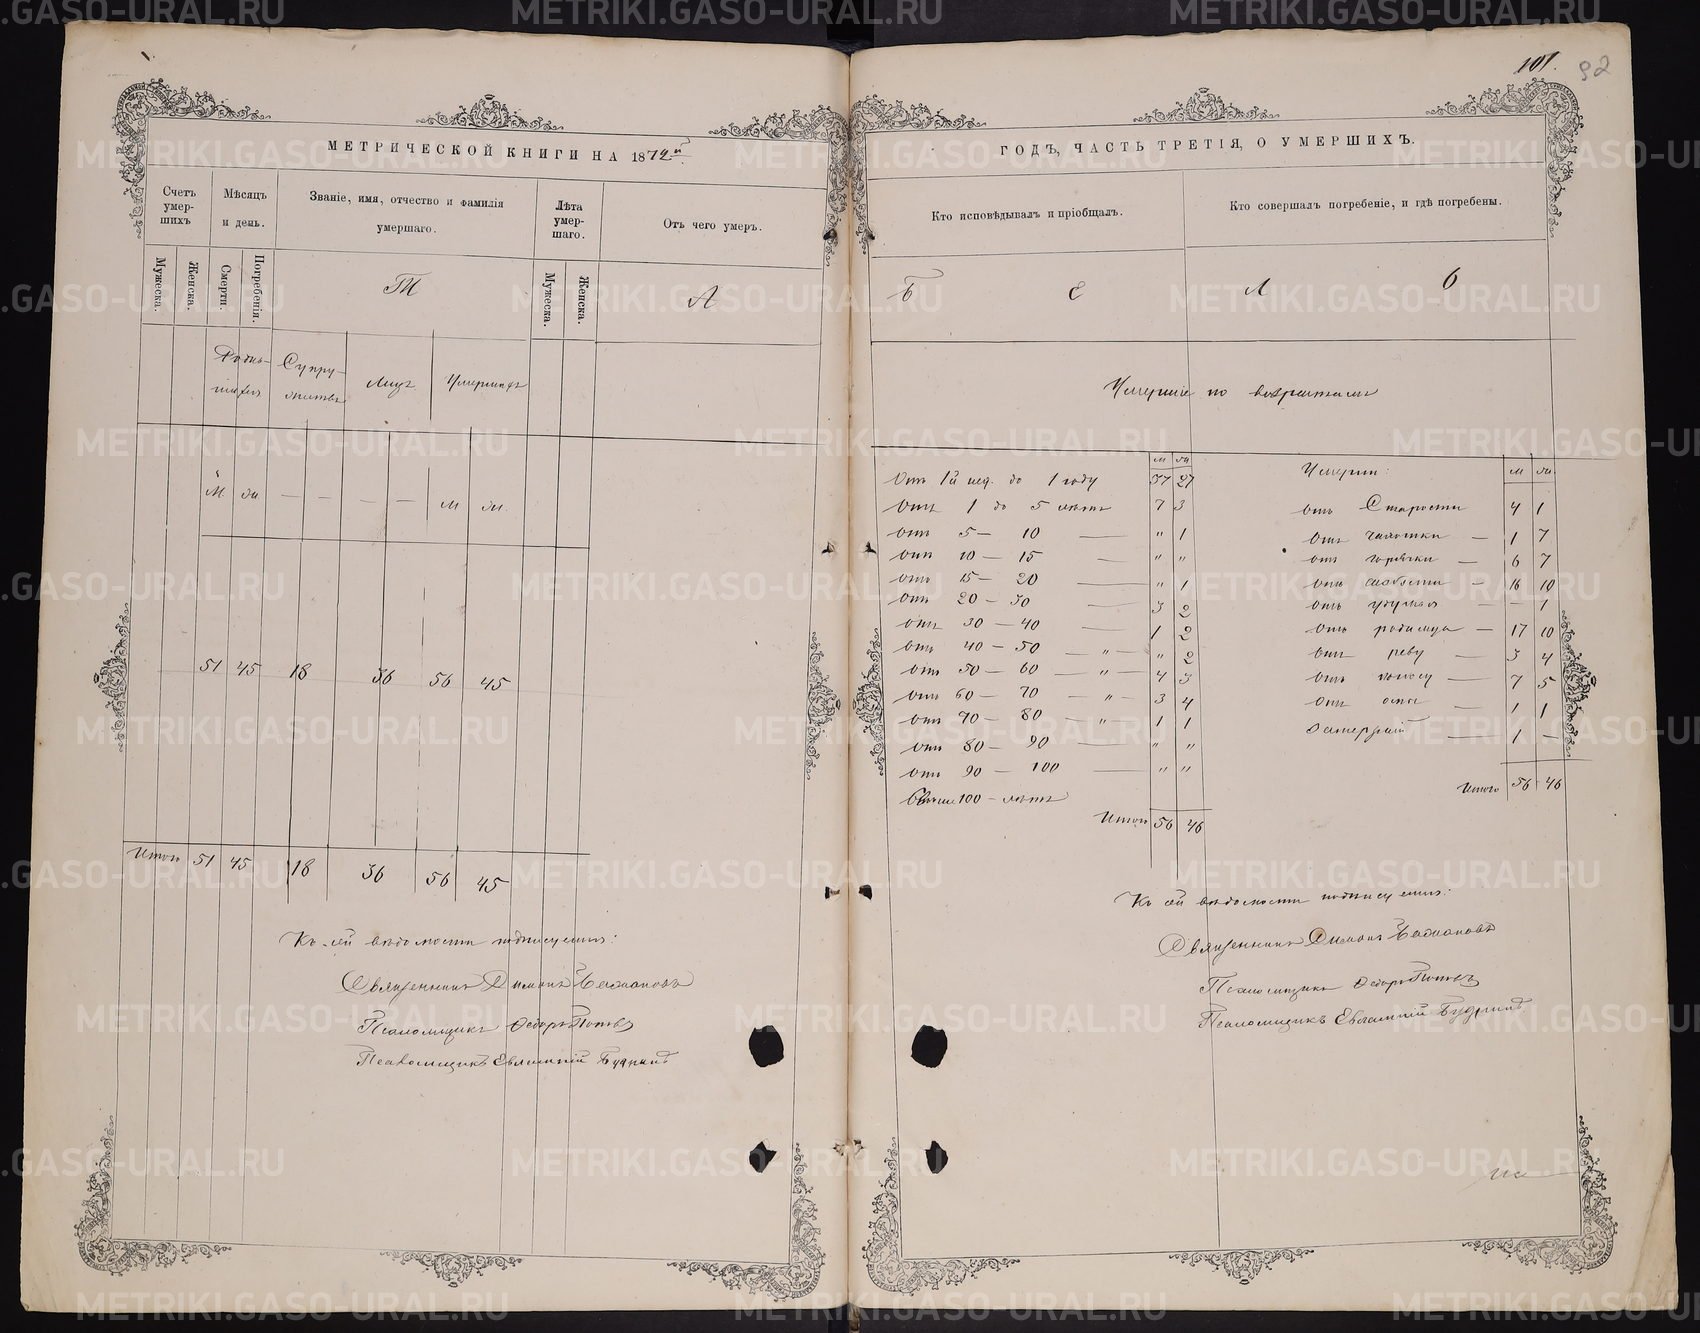 101. 92
МЕТРИЧЕСКОЙ КНИГИ НА 1872й
Счетъ умершихъ
Мѣсяцъ и день.
Званіе, имя, отчество и фамилія умершаго.
Лѣта умершаго.
Отъ чего умеръ.
Мужеска. Женска. Смерти. Погребенія. Мужеска. Женска.
Т А
Родившихся Супружествъ Лицъ Умершихъ
М ж — — — — м ж
51 45 18 36 56 45
Итого 51 45 18 36 56 45
Къ сей вѣдомости подписуемся:
Священникъ Димитрій
Псаломщикъ Ѳедоръ Поповъ
Псаломщикъ Евгеній Будринъ
ГОДЪ, ЧАСТЬ ТРЕТІЯ, О УМЕРШИХЪ.
Кто исповѣдывалъ и пріобщалъ.
Кто совершалъ погребеніе, и гдѣ погребены.
Б Е Л Ь
Умершіе по возрастамъ
м ж
Отъ 1й нед. до 1 году 37 27
Отъ 1 до 5 лѣтъ 7 3
Отъ 5 — 10 — " 1
Отъ 10 — 15 " "
Отъ 15 — 20 — " 1
Отъ 20 — 30 — 3 2
Отъ 30 — 40 — 1 2
Отъ 40 — 50 — " — " 2
Отъ 50 — 60 — " — 4 3
Отъ 60 — 70 — " — 3 4
Отъ 70 — 80 — " — 1 1
Отъ 80 — 90 — " "
Отъ 90 — 100 — " "
Свыше 100 — лѣтъ
Итого 56 46
Умерли: м ж
Отъ Старости 4 1
Отъ чахотки — 1 7
Отъ горячки — 6 7
Отъ слабости — 16 10
Отъ удушья — — 1
Отъ родимца — 17 10
Отъ реву — 3 4
Отъ поносу — 7 5
Отъ оспы — 1 1
— 1 —
Итого 56 46
Къ сей вѣдомости подписуемся:
Священникъ
Псаломщикъ Ѳедоръ Поповъ
Псаломщикъ Евгеній Будринъ
METRIKI.GASO-URAL.RU